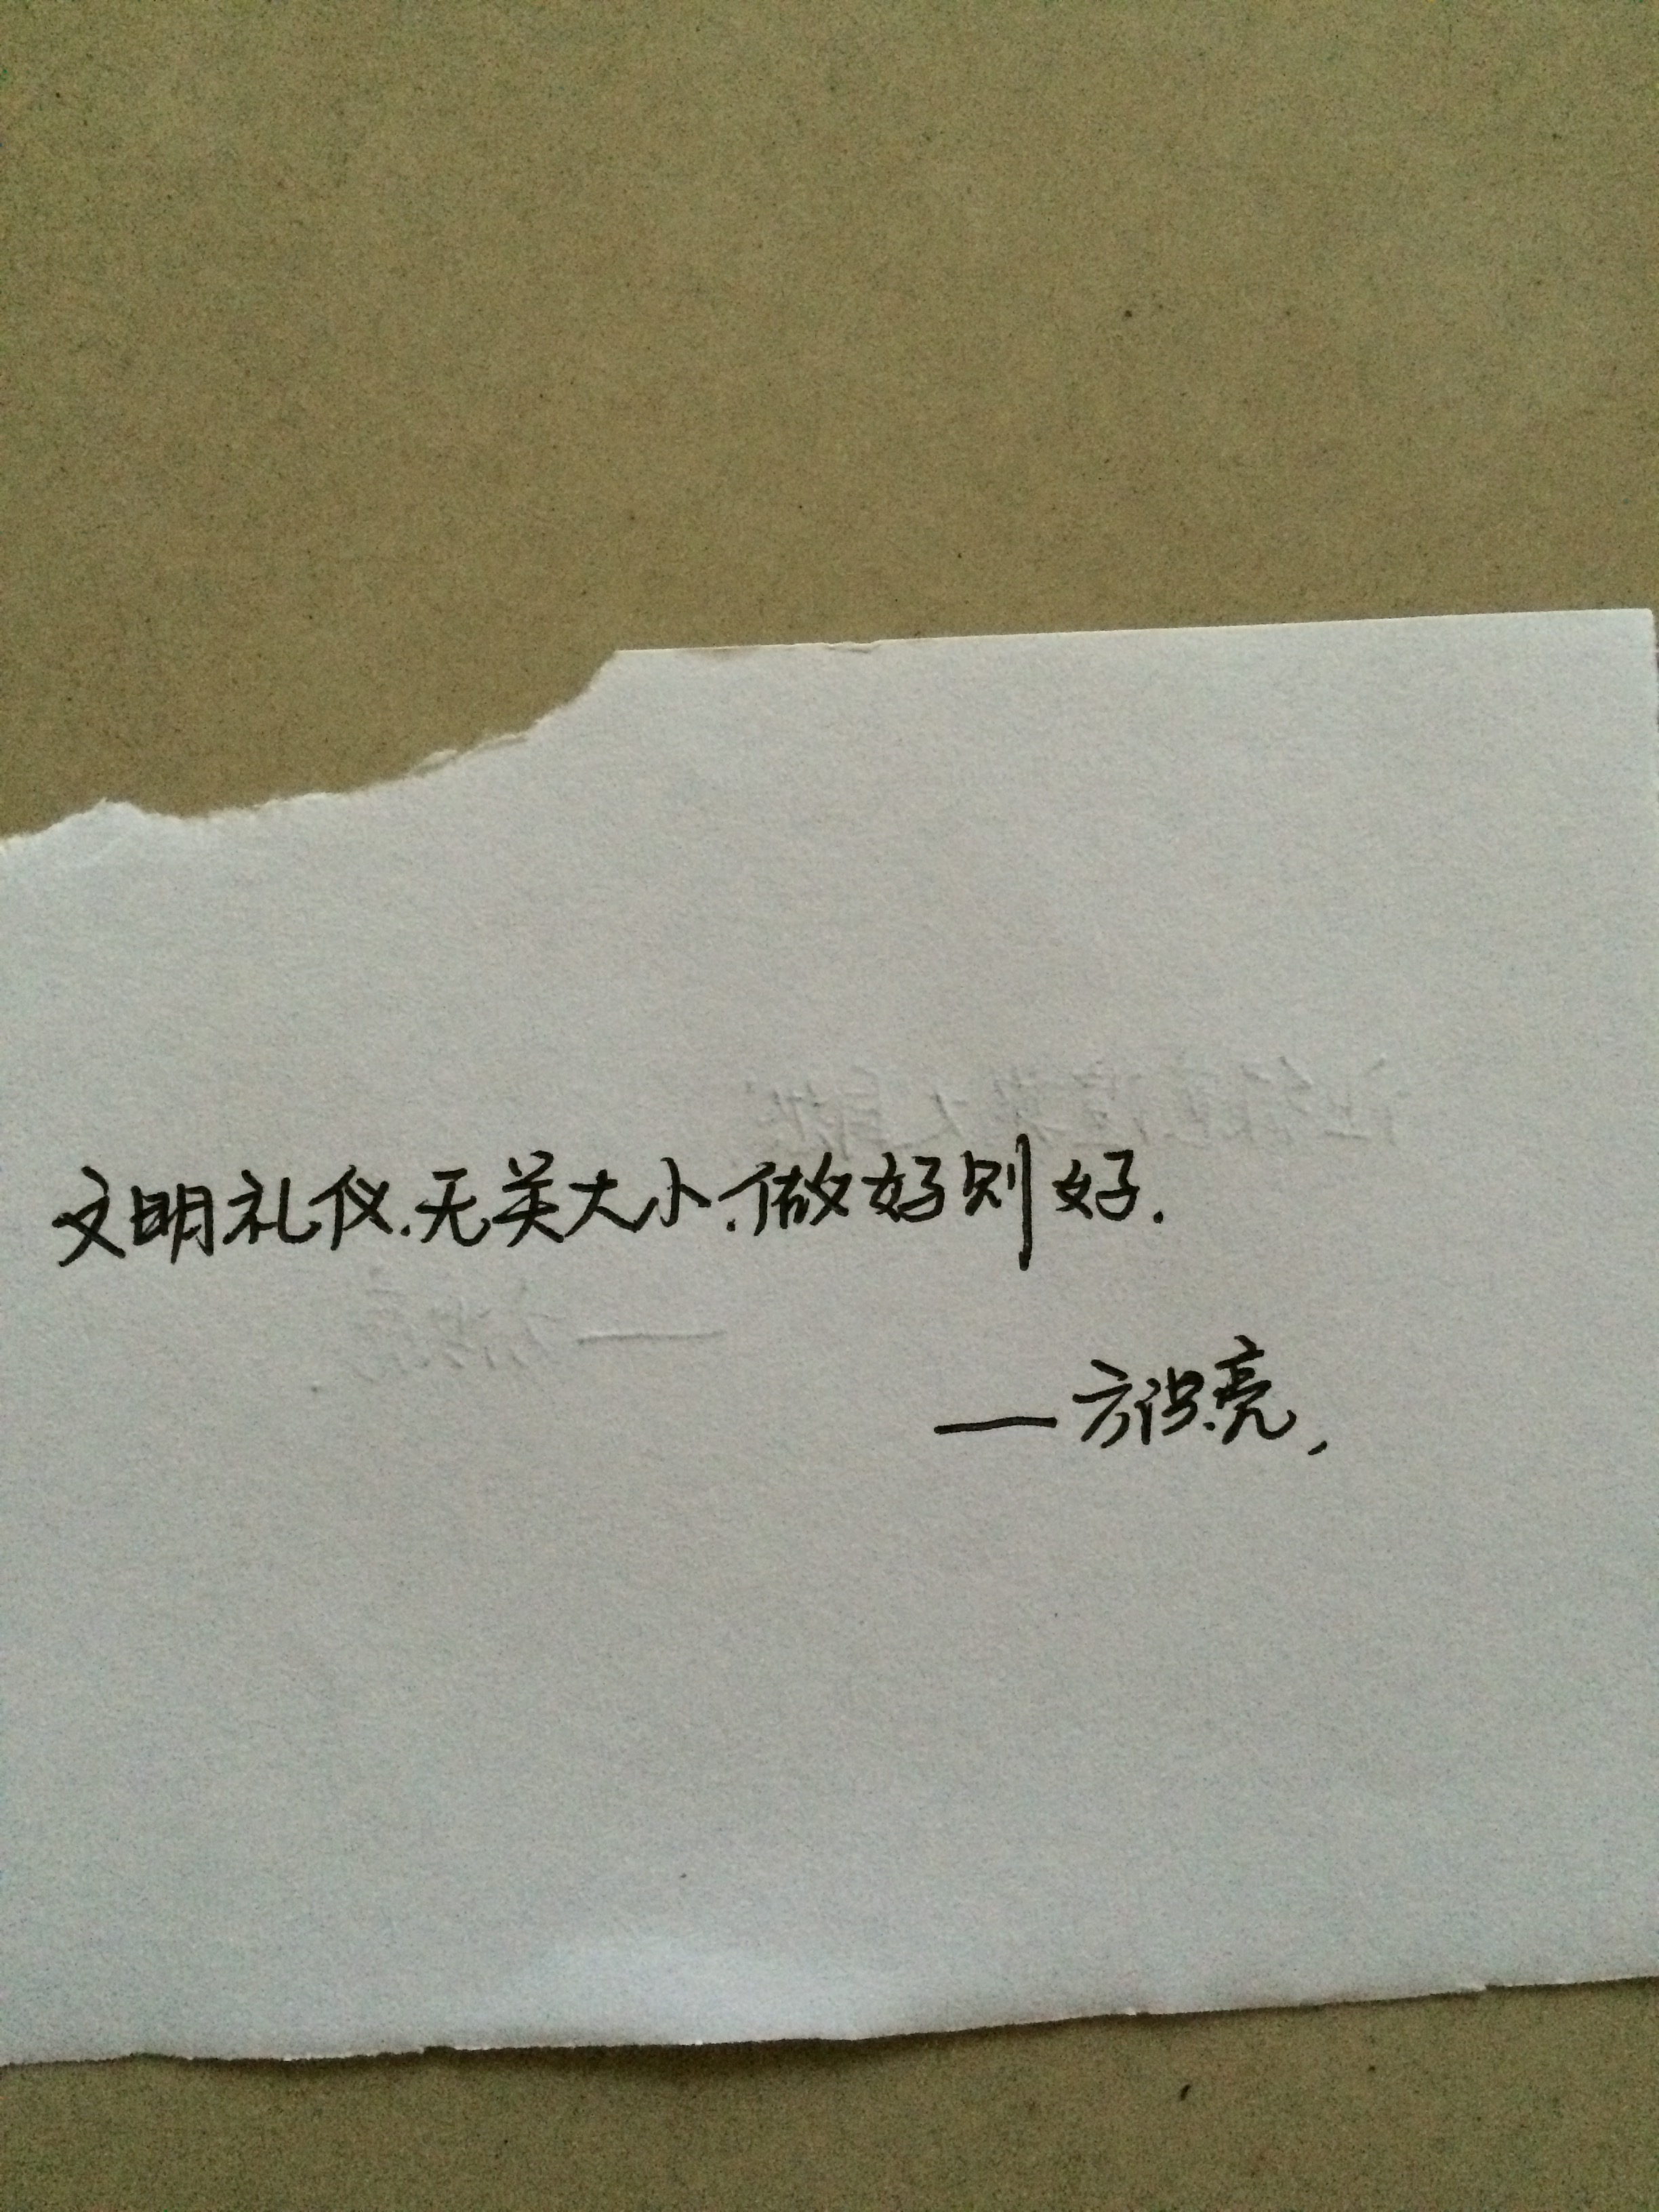 文明礼仪.无关大小.做好则好.
—方识亮,